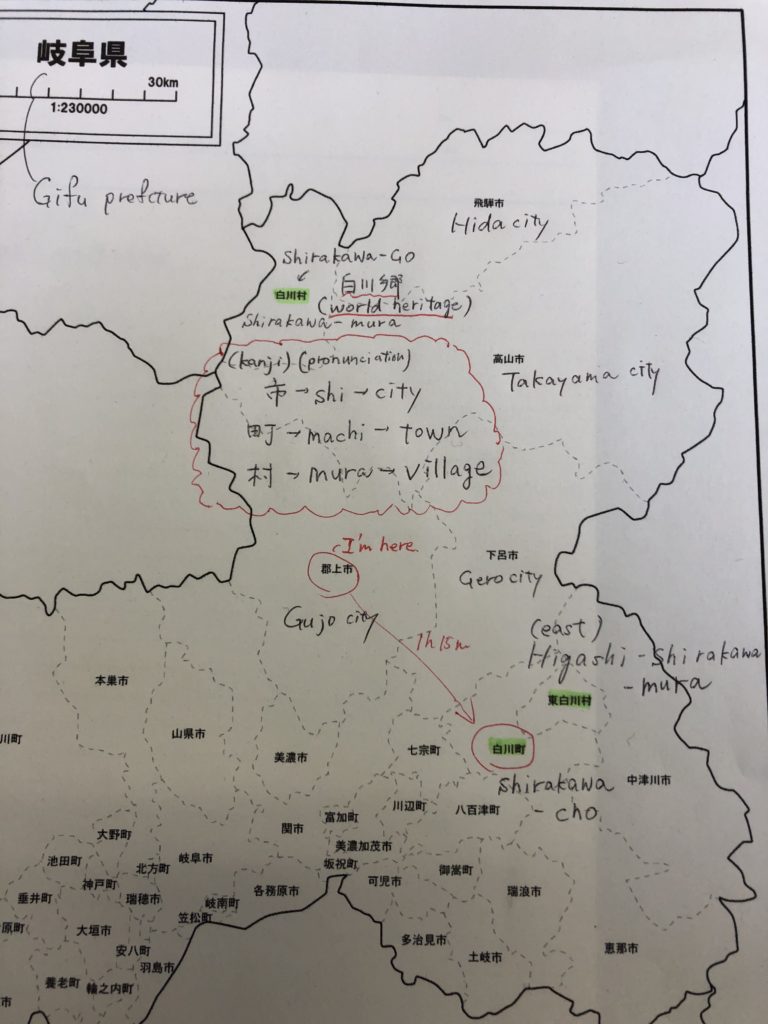 岐阜県
30km
1:230000
Gifu prefcture
飛騨市
Hida city
Shirakawa-Go
白川村
白川郷
(world heritage)
Shirakawa-mura
(kanji) (pronunciation)
市→shi→city
町→machi→town
村→mura→village
高山市
Takayama city
I'm here
郡上市
Gujo city
下呂市
Gero city
1h15m
(east)
Higashi-Shirakawa
-mura
東白川村
本巣市
山県市
美濃市
七宗町
白川町
Shirakawa
-cho
中津川市
川町
川辺町
八百津町
富加町
関市
大野町
美濃加茂市
坂祝町
池田町
岐阜市
北方町
神戸町
可児市
御嵩町
瑞浪市
各務原市
垂井町
瑞穂市
岐南町
笠松町
原町
大垣市
安八町
羽島市
多治見市
土岐市
恵那市
養老町
輪之内町
市